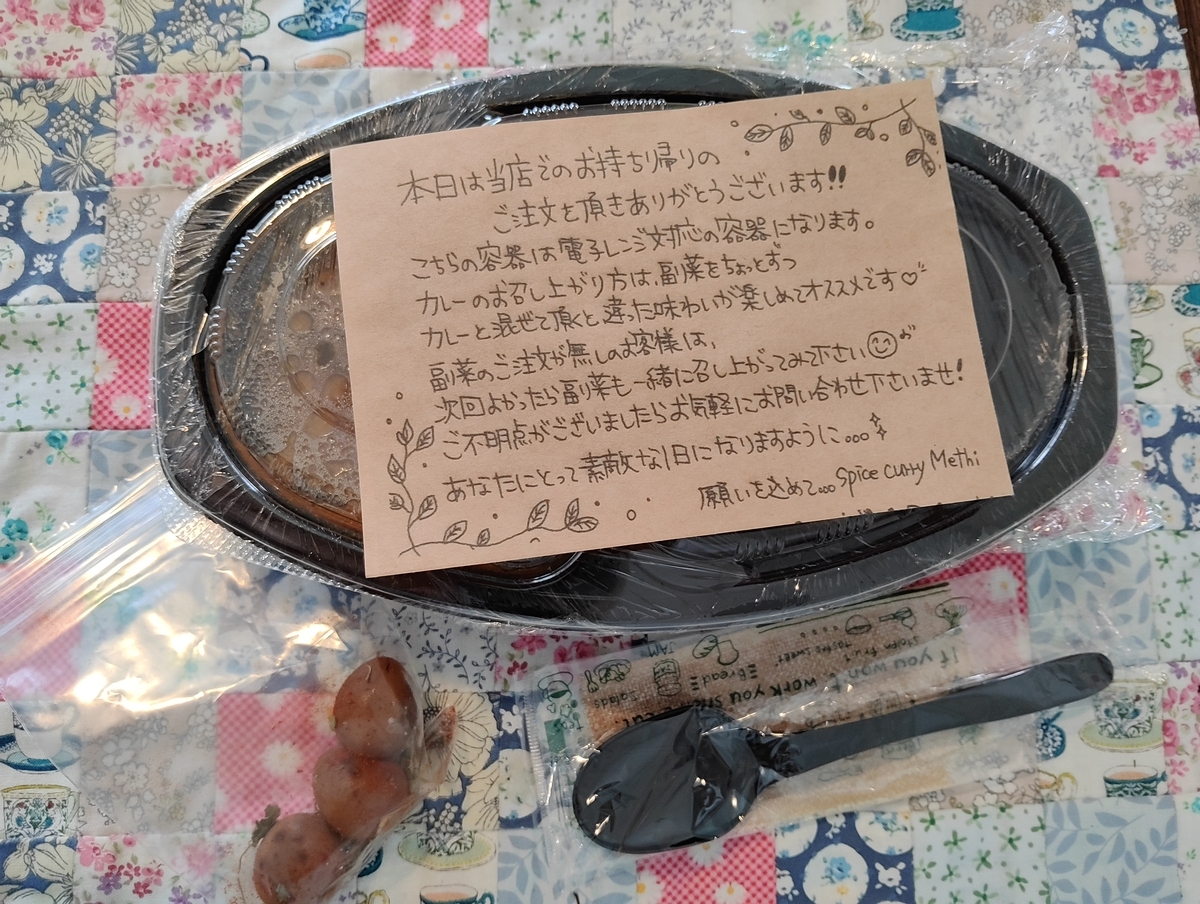 本日は当店でのお持ち帰りの
ご注文を頂きありがとうございます!!
こちらの容器は電子レンジ対応の容器になります。
カレーのお召し上がり方は、副菜をちょっとずつ
カレーと混ぜて頂くと違った味わいが楽しめてオススメです♡
副菜のご注文が無しのお客様は、
次回よかったら副菜も一緒に召し上がってみて下さい
ご不明点がございましたらお気軽にお問い合わせ下さいませ!
あなたにとって素敵な1日になりますように...
願いを込めて... Spice curry Methi
JAM
Bread
Salads
If you won't work you shall